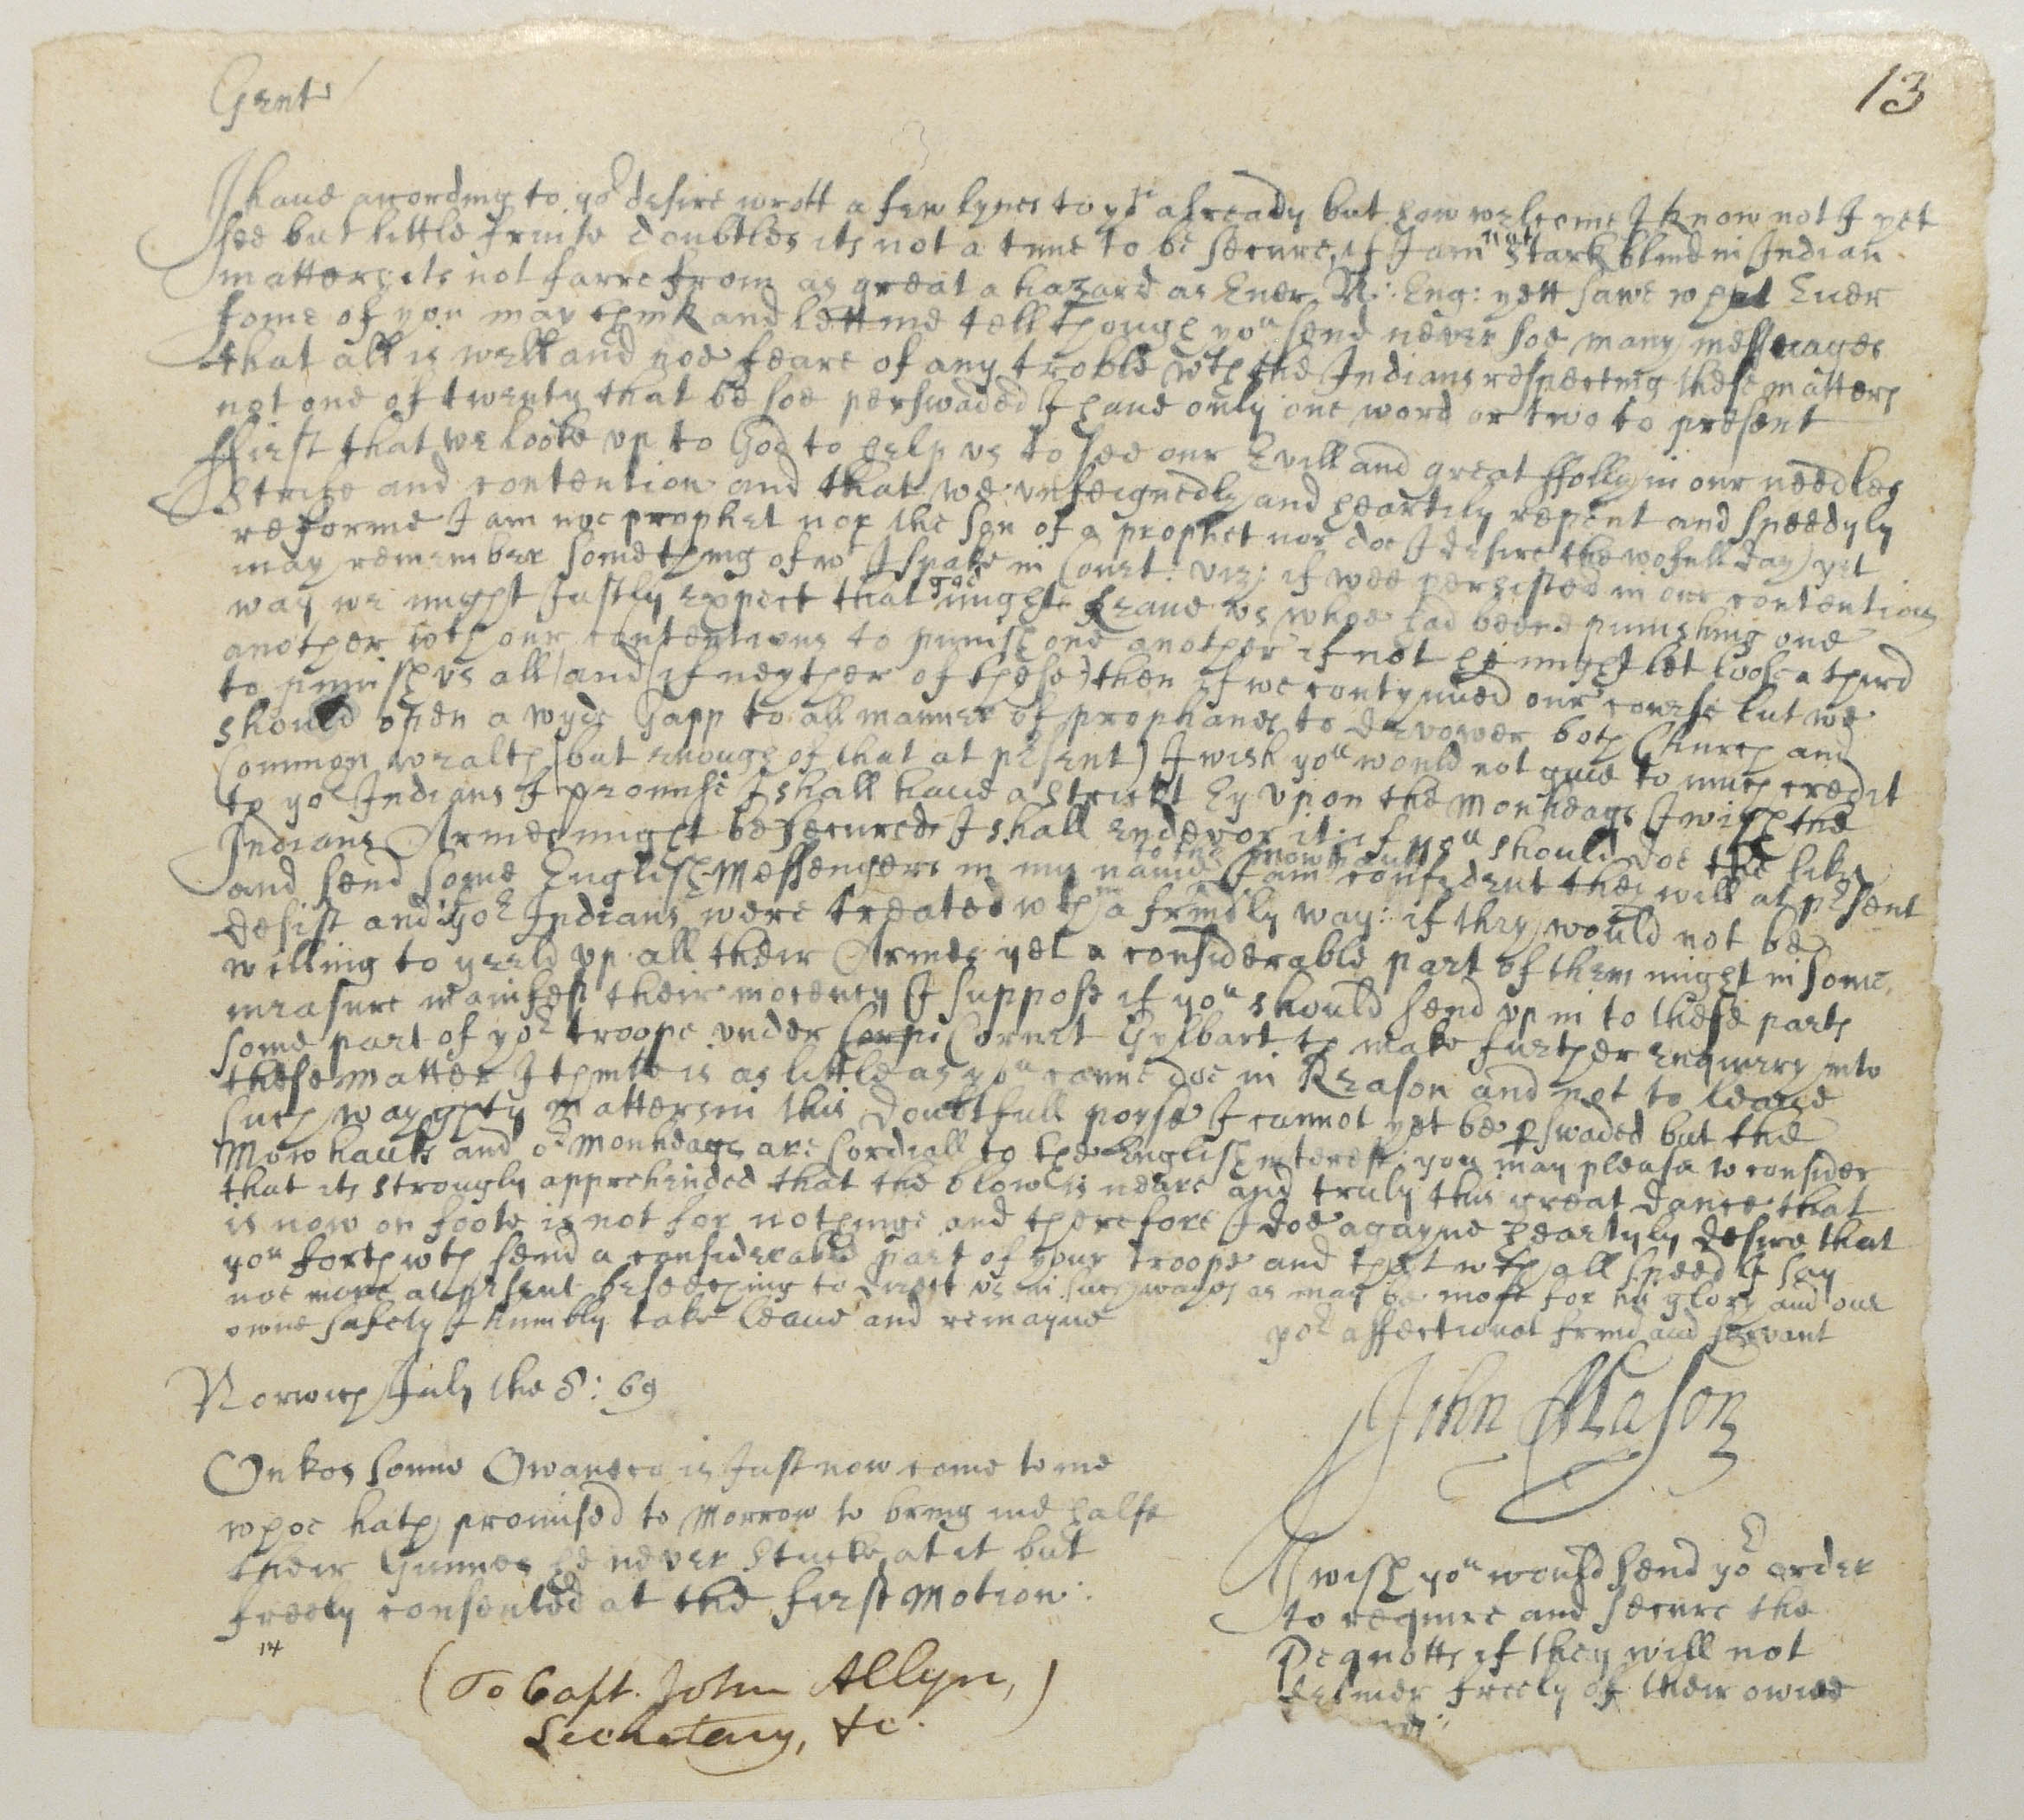 Gent
13
I haue acording to yor desire wrott a few lynes to you already but how welcome I know not I yet
see but little fruite doubtles its not a time to be secure, if I am not stark blind in Indian
matters its not farre from as great a hazard as Euer N: Eng: yett sawe what Euer
some of you may think and lett me tell though you send never soe many messuages
that all is well and noe feare of any troble wth the Indians respecting these matters
not one of twenty that be soe perswaded I haue only one word or two to present
ffirst that we looke vp to God to help vs to see our Evill and great ffolly in our needles
Strife and contention and that we vnfeignedly and heartily repent and speedyly
reforme I am noe prophet nor the son of a prophet nor doe I desire the wofull day yet
may remember something of wt I spake in Court: viz; if wee persisted in our contentious
way we might Justly expect that god might leaue vs whoe had beene punishing one
another wth our contentions to punish one another if not he might let loose a third
to punish vs all and (if neyther of these) then if we contynued our course but we
should open a wyde Gapp to all manner of prophanes to devower both Church and
Common wealth (but enough of that at present) I wish you would not giue to much credit
to yor Indians I promise I shall haue a strickt Ey vpon the Monheags I wish the
Indians Armes might be secured I shall endevor it: if you should doe the like
and send some English Messengers in my name to the Mowhauks I am confident they will at present
desist and if yor Indians were treated wth in a frindly way: if they would not be
willing to yeeld vp all their Armes yet a considerable part of them might in some
measure manifest their inocency I suppose if you should send vp in to these parts
some part of yor troope vnder Cornet Gylbart to make further enquiry into
these matter I thinke is as little as you canne doe in Reason and not to leaue
such wayghty matters in this doubtfull poyse I cannot yet be pswaded but the
Mowhauks and or Monheags are Cordiall to the English interest: you may please to consider
that its strongly apprehended that the blow is neare and truly this great dance that
is now on foote is not for nothinge and therefore I doe agayne heartyly desire that
you forthwth send a considerable part of your troope and that wth all speed I say
noe more at present beseeching to direct vs in such wayes as may be most for his glory and our
owne safety I humbly take leaue and remayne
yor affectionat frind and servant
John Mason
Norwich July the 8: 69
Onkos sonne Owaneco is Just now come to me
whoe hath promised to Morrow to bring me halfe
their Gunnes he never stucke at it but
freely consented at the first Motion:
14
I wish you would send yor order
to require and secure the
Pequotts if they will not
deliuer freely of their owne
(To Capt. John Allyn,)
Secretary, &c.